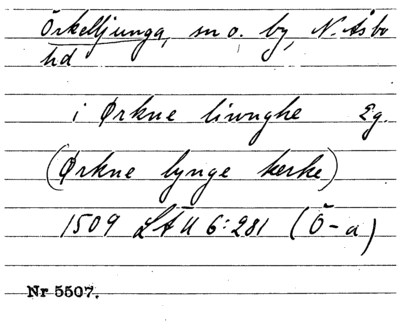 Örkelljunga, sn o. by, N. Åsbo
hd
i Ørkne liunghe Eg.
(Ørkne lynge kerke)
1509 LÄU 6:281 (Ö-a)
Nr 5507.